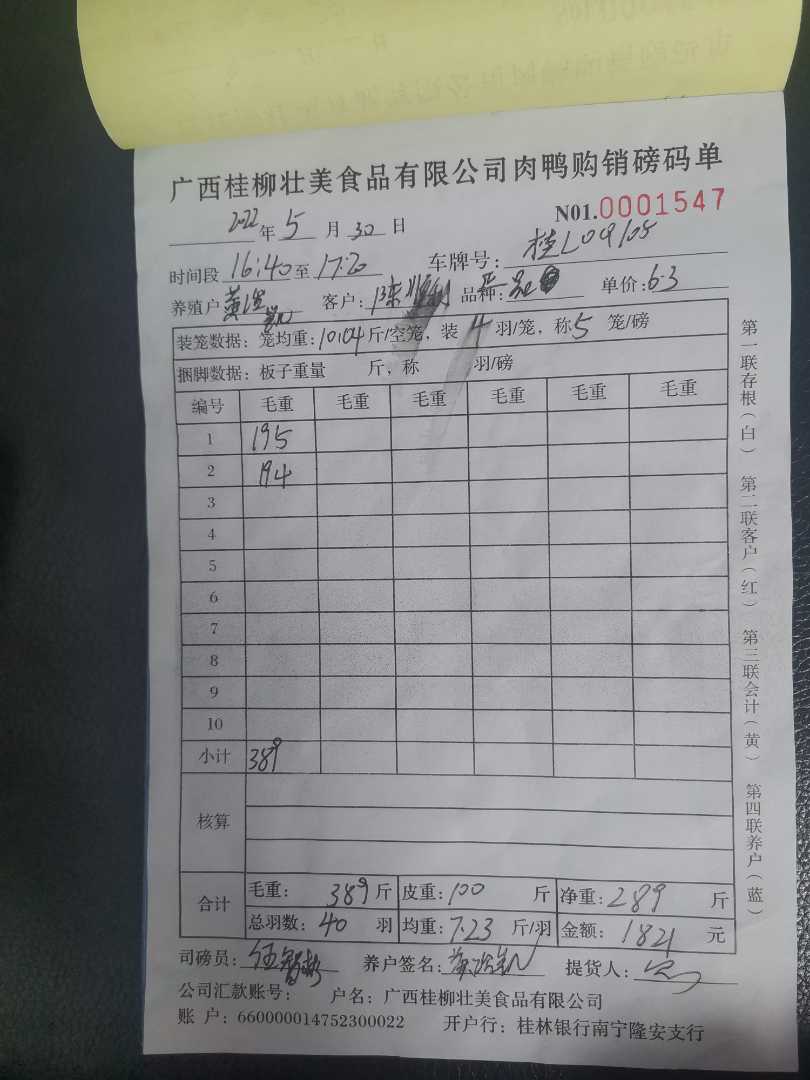 广西桂柳壮美食品有限公司肉鸭购销磅码单
N01.0001547
2022年5月30日
时间段16:40至17:20 车牌号:桂L09108
养殖户黄 客户:陈 品种: 单价:6.3
装笼数据:笼均重:10.04斤/空笼,装4羽/笼,称5笼/磅
捆脚数据:板子重量 斤,称 羽/磅
编号 毛重 毛重 毛重 毛重 毛重 毛重
1 195
2 194
3
4
5
6
7
8
9
10
小计 389
核算
合计 毛重:389斤 皮重:100斤 净重:289斤
总羽数:40羽 均重:7.23斤/羽 金额:1821元
司磅员: 养户签名:黄 提货人:
公司汇款账号: 户名:广西桂柳壮美食品有限公司
账 户:660000014752300022 开户行:桂林银行南宁隆安支行
第一联存根(白) 第二联客户(红) 第三联会计(黄) 第四联养户(蓝)